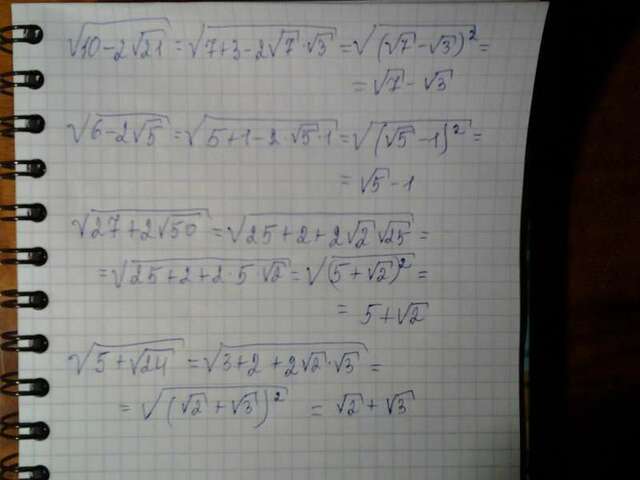 √(10−2√21) = √(7+3−2√7·√3) = √((√7−√3)²) =
= √7−√3
√(6−2√5) = √(5+1−2·√5·1) = √((√5−1)²) =
= √5−1
√(27+2√50) = √(25+2+2√2√25) =
= √(25+2+2·5·√2) = √((5+√2)²) =
= 5+√2
√(5+√24) = √(3+2+2√2·√3) =
= √((√2+√3)²) = √2+√3